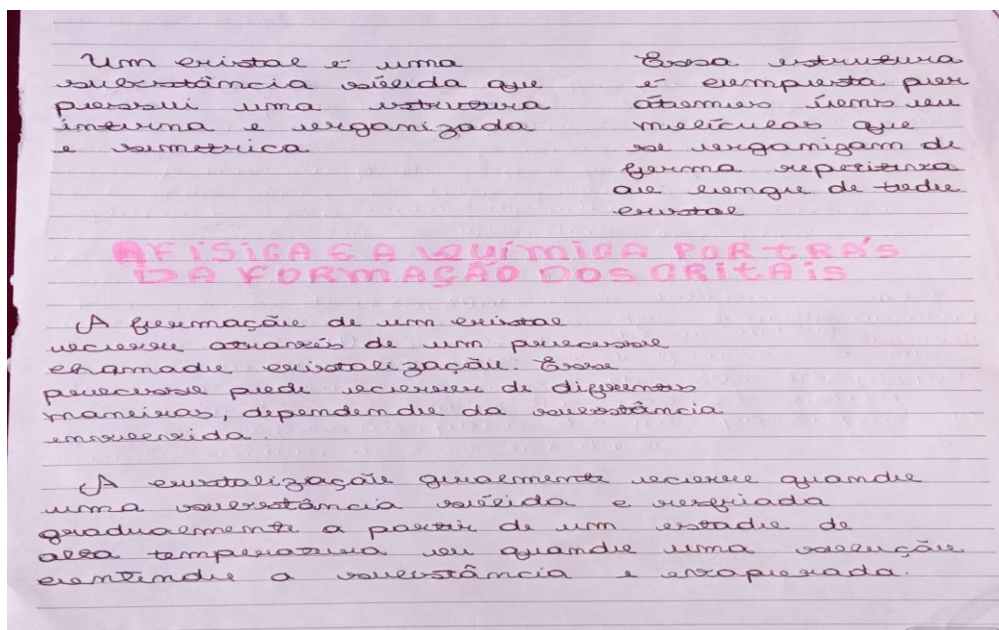 Um cristal é uma
substância sólida que
possui uma estrutura
interna e organizada
e simetrica
Essa estrutura
é composta por
átomos íons ou
molículas que
se organizam de
forma repetitiva
ao longo de todo
cristal
A FÍSICA E A QUÍMICA POR TRÁS
DA FORMAÇÃO DOS CRITAIS
A formação de um cristal
ocorre através de um processo
chamado cristalização. Esse
processo pode ocorrer de diferentes
maneiras, dependendo da substância
envolvida.
A cristalização geralmente ocorre quando
uma substância sólida e resfriada
gradualmente a partir de um estado de
alta temperatura ou quando uma solução
contendo a substância e evaporada.